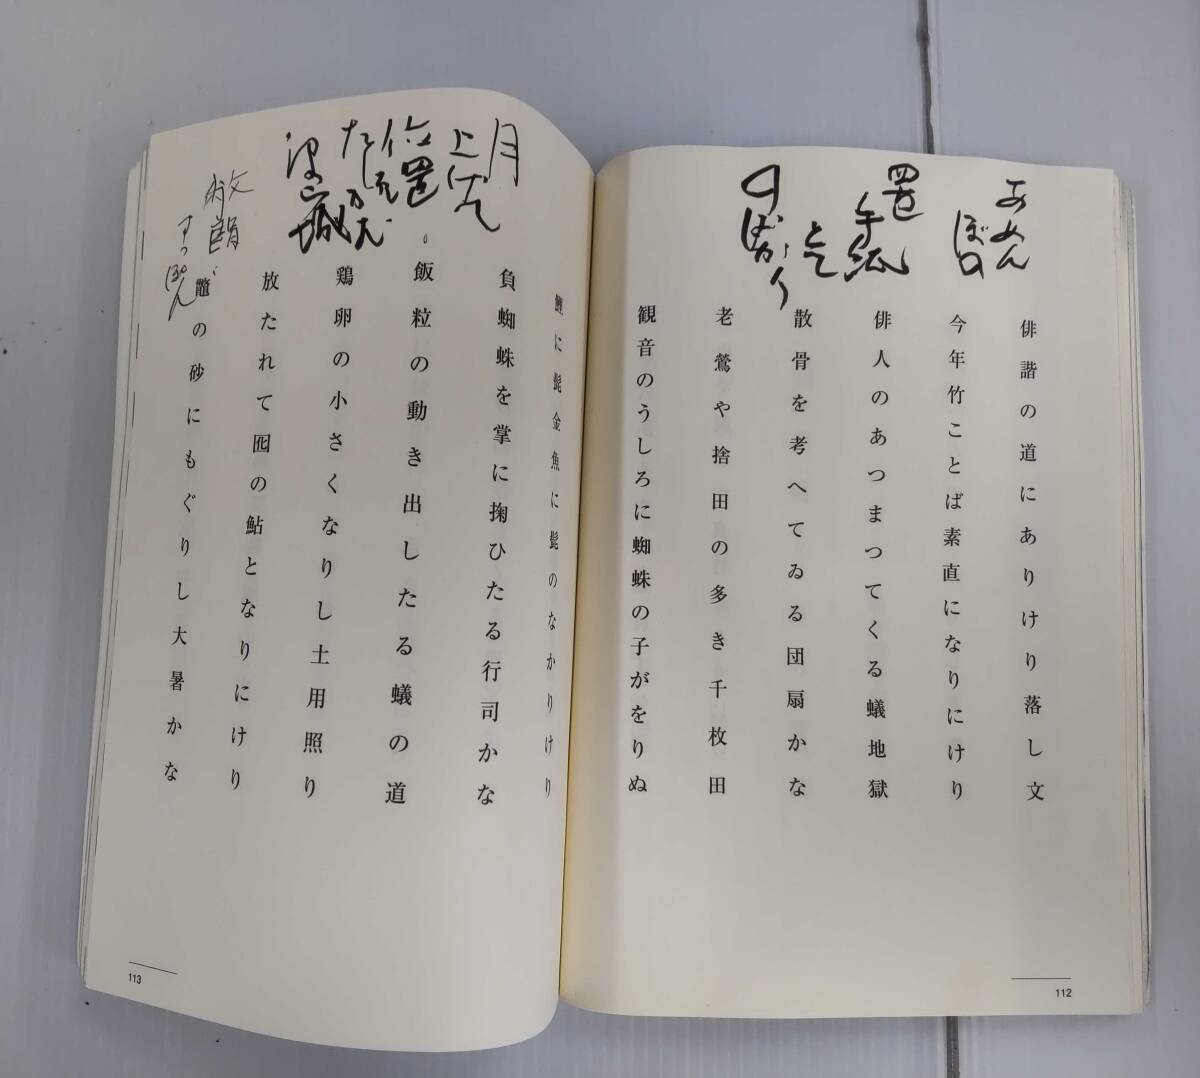 あめん
ぼの
置
手紙
俳諧の道にありけり落し文
今年竹ことば素直になりにけり
俳人のあつまつてくる蟻地獄
散骨を考へてゐる団扇かな
老鶯や捨田の多き千枚田
観音のうしろに蜘蛛の子がをりぬ
112
月
位置
すっぽん
鯉に髭金魚に髭のなかりけり
負蜘蛛を掌に掬ひたる行司かな
飯粒の動き出したる蟻の道
鶏卵の小さくなりし土用照り
放たれて囮の鮎となりにけり
鼈の砂にもぐりし大暑かな
113